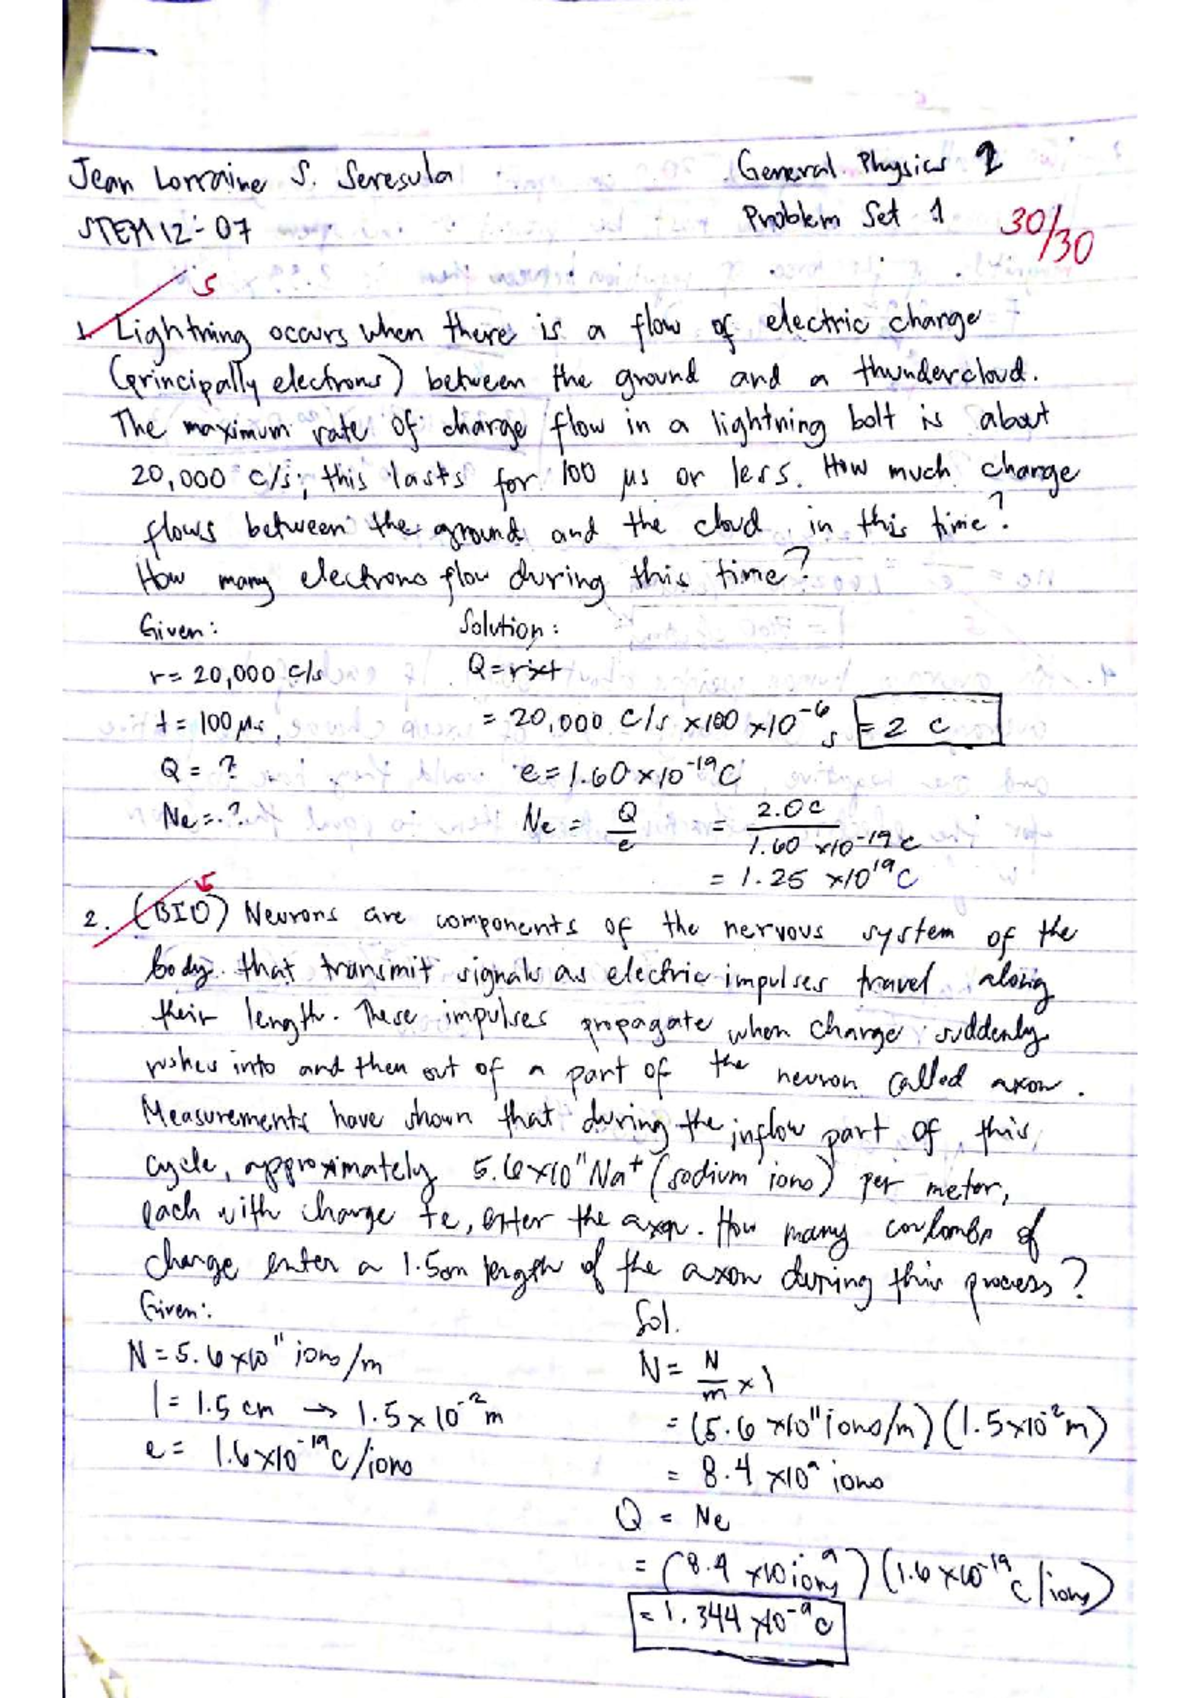 Jean Lorraine S. Seresula
General Physics 2
STEM 12-07
Problem Set 1
30/30
5
1. Lightning occurs when there is a flow of electric charge
(principally electrons) between the ground and a thundercloud.
The maximum rate of charge flow in a lightning bolt is about
20,000 C/s; this lasts for 100 μs or less. How much charge
flows between the ground and the cloud in this time?
How many electrons flow during this time?
Given:
r = 20,000 C/s
t = 100 μs
Q = ?
Ne = ?
Solution:
Q = r x t
= 20,000 C/s x 100 x 10^-6 s = 2 C
e = 1.60 x 10^-19 C
Ne = Q/e = 2.0 C / 1.60 x 10^-19 C
= 1.25 x 10^19 C
5
2. (BIO) Neurons are components of the nervous system of the
body that transmit signals as electric impulses travel along
their length. These impulses propagate when charge suddenly
rushes into and then out of a part of the neuron called axon.
Measurements have shown that during the inflow part of this
cycle, approximately 5.6 x 10^11 Na+ (sodium ions) per meter,
each with charge +e, enter the axon. How many coulombs of
charge enter a 1.5cm length of the axon during this process?
Given:
N = 5.6 x 10^11 ions/m
l = 1.5 cm → 1.5 x 10^-2 m
e = 1.6 x 10^-19 C/ions
Sol.
N = N/m x l
= (5.6 x 10^11 ions/m) (1.5 x 10^-2 m)
= 8.4 x 10^9 ions
Q = Ne
= (8.4 x 10^9 ions) (1.6 x 10^-19 C/ions)
= 1.344 x 10^-9 C